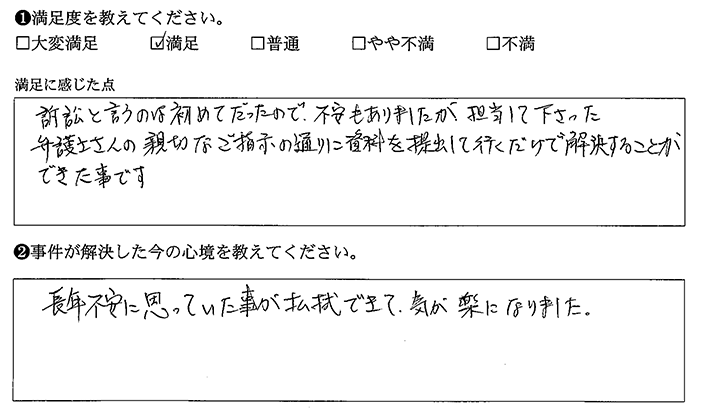 ❶満足度を教えてください。
□大変満足 ☑満足 □普通 □やや不満 □不満
満足に感じた点
訴訟と言うのは初めてだったので、不安もありましたが担当して下さった
弁護士さんの親切なご指示の通りに資料を提出して行くだけで解決することが
できた事です
❷事件が解決した今の心境を教えてください。
長年不安に思っていた事が払拭できて、気が楽になりました。